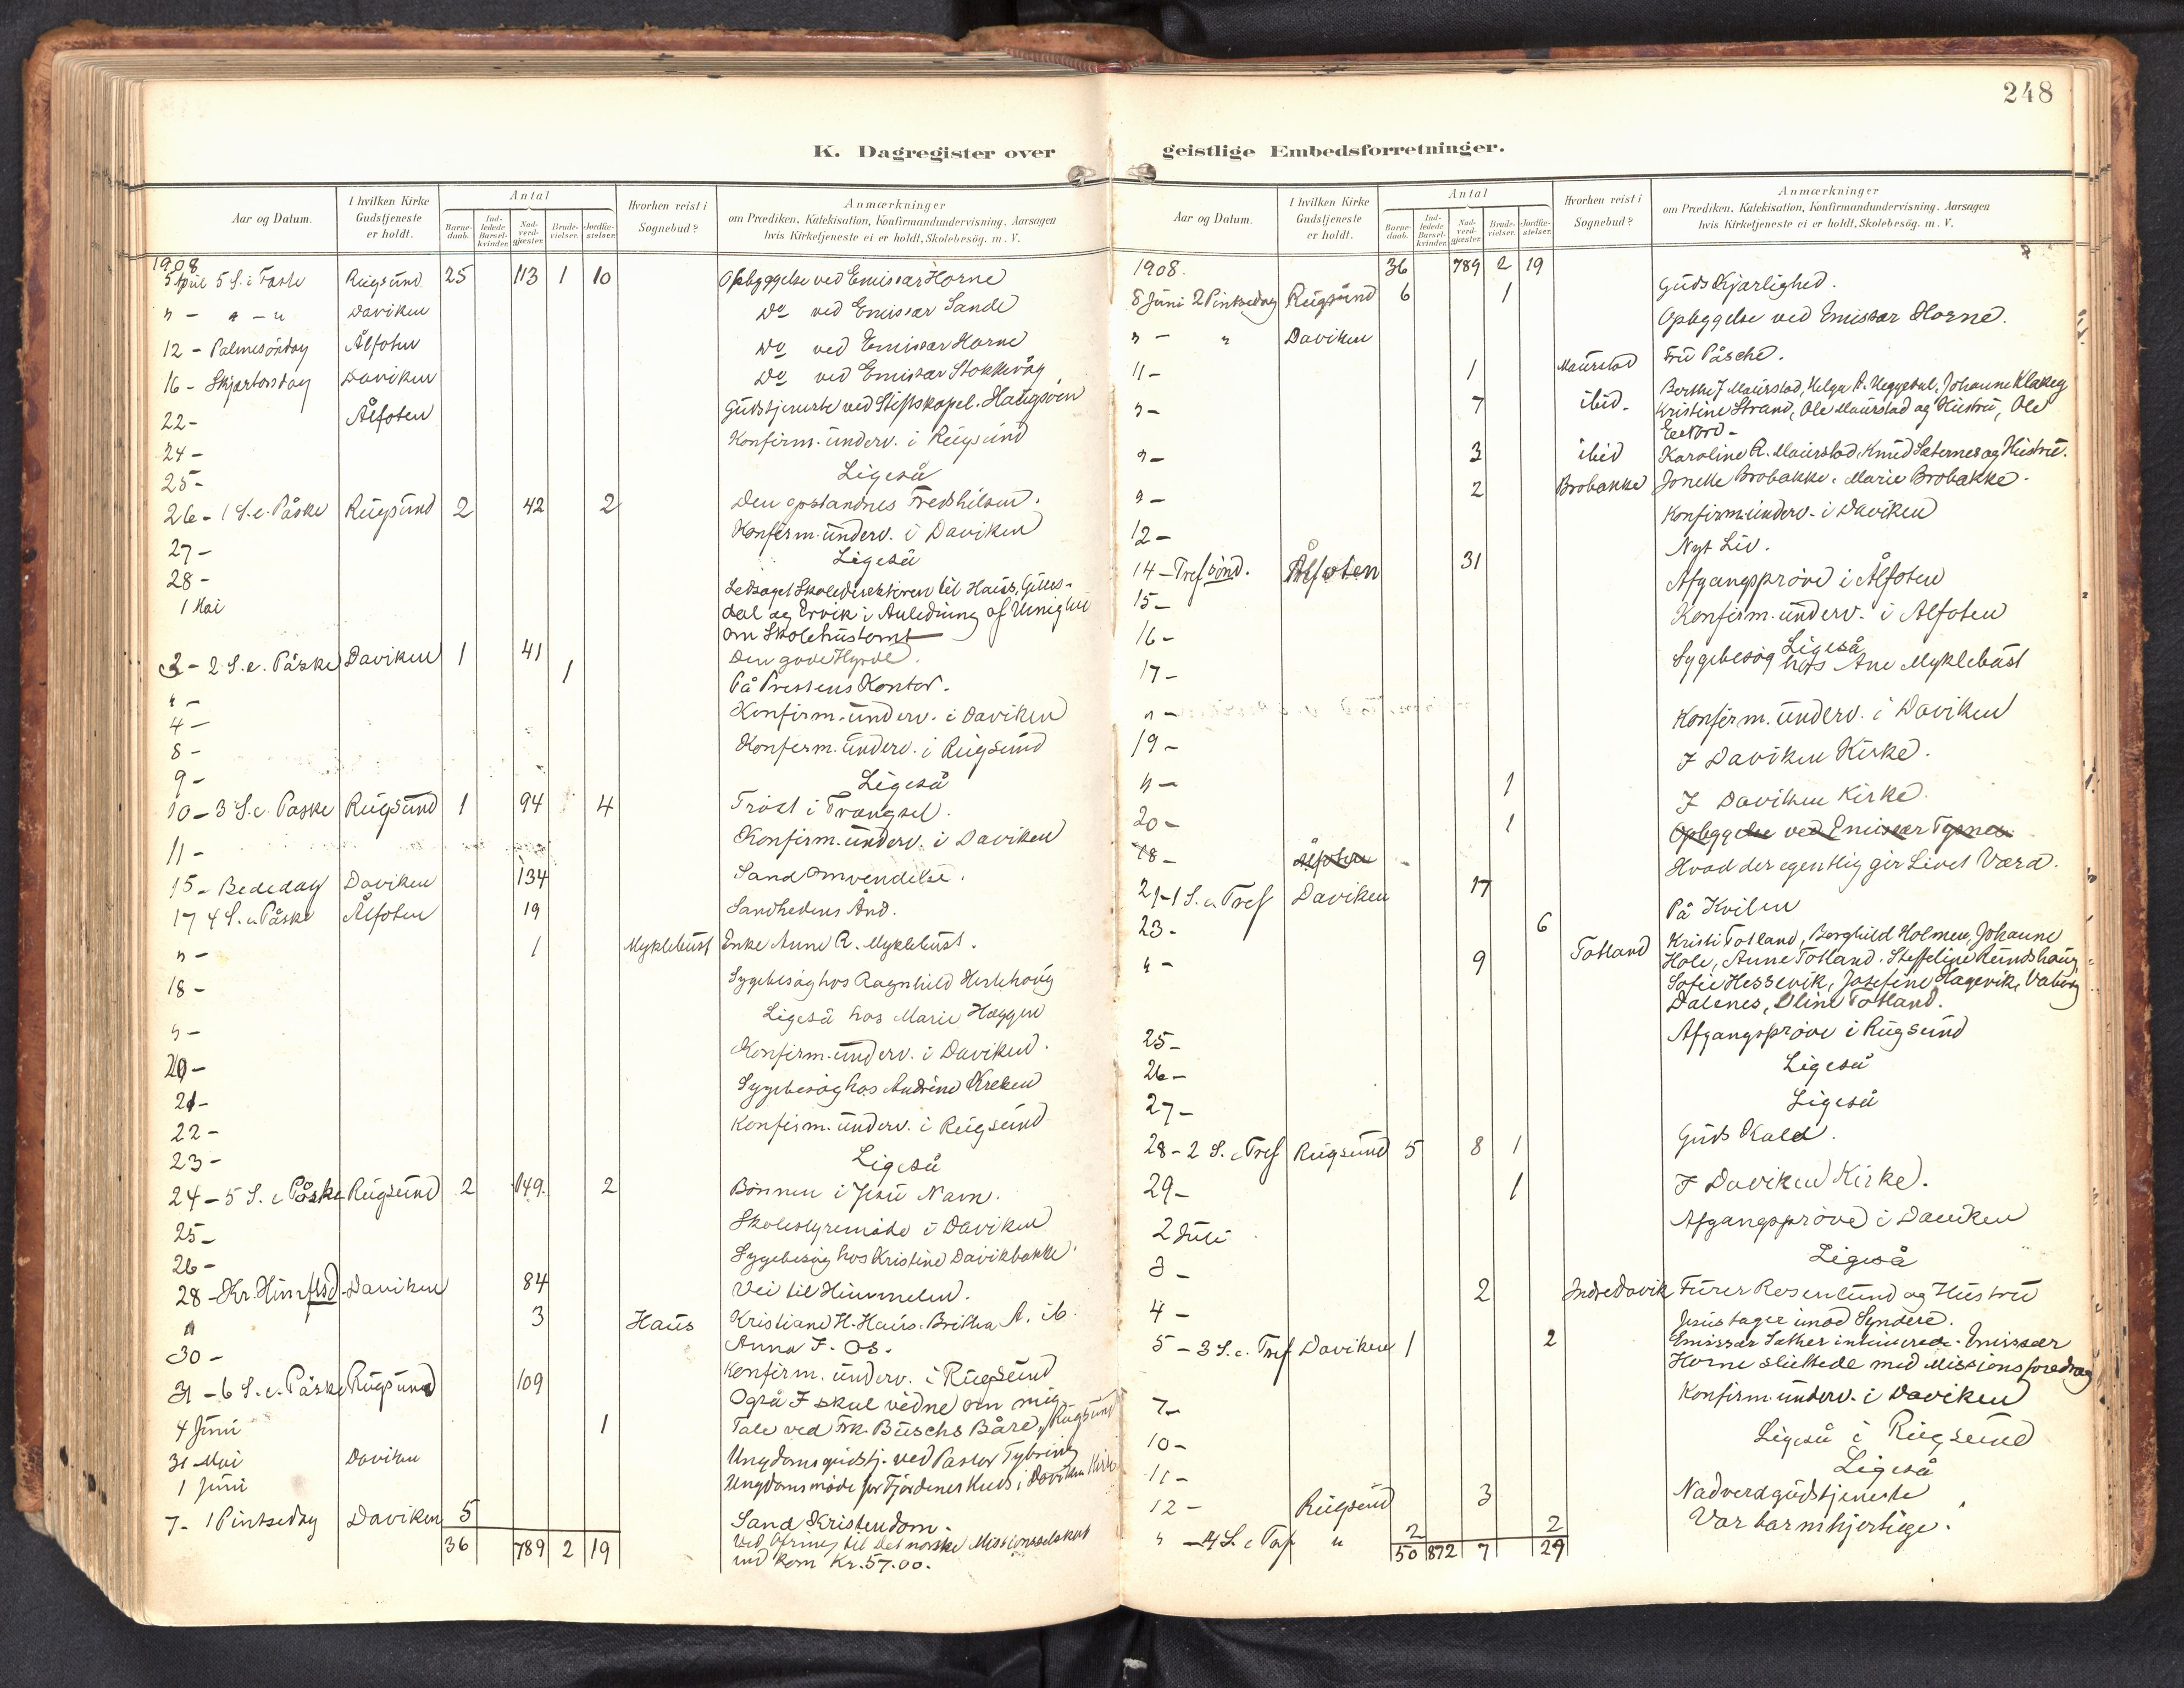 248
K. Dagregister over geistlige Embedsforretninger.
Aar og Datum. I hvilken Kirke Gudstjeneste er holdt. Antal Barne-daab. Ind-ledede Barsel-kvinder. Nad-verd-gjæster. Brude-vielser. Jordfæ-stelser. Hvorhen reist i Sognebud? Anmærkninger om Prædiken, Katekisation, Konfirmandundervisning, Aarsagen hvis Kirketjeneste ei er holdt, Skolebesøg. m. V.
1908
5 April 5 S. i Faste Rugsund 25 113 1 10 Opbyggelse ved Emissær Horne
" - " - " Daviken Do ved Emissær Sande
12 - Palmesöndag Ålfoten Do ved Emissær Horne
16 - Skjærtorsdag Daviken Do ved Emissær Stokkevåg
22 - Ålfoten Gudstjeneste ved Stiftskapel. Haugsøen
24 - Konfirm. underv. i Rugsund
25 - Ligeså
26 - 1 S. e. Påske Rugsund 2 42 2 Den opstandnes Fredshilsen.
27 - Konfirm. underv. i Daviken
28 - Ligeså
1 Mai Ledsaget Skoledirektøren til Haus, Gilles-
dal og Ervik i Anledning af Uenighed
om Skolehustomt
3 - 2 S. e. Påske Daviken 1 41 Den gode Hyrde.
" - 1 På Prestens Kontor.
4 - Konfirm. underv. i Daviken
8 - Konfirm. underv. i Rugsund
9 - Ligeså
10 - 3 S. e. Påske Rugsund 1 94 4 Trøst i Trængsel.
11 - Konfirm. underv. i Daviken
15 - Bededag Daviken 134 Sand Omvendelse.
17 4 S. e. Påske Ålfoten 19 Sandhedens Ånd.
" - 1 Myklebust Enke Anne R. Myklebust.
18 - Sygebesøg hos Ragnhild
" - Ligeså hos Marie Hæggen
20 - Konfirm. underv. i Daviken.
21 - Sygebesøg hos Andrine
22 - Konfirm. underv. i Rugsund
23 - Ligeså
24 - 5 S. e Påske Rugsund 2 149. 2 Bönnen i Jesu Navn.
25 - Skolestyremöde i Daviken
26 - Sygebesøg hos Kristine Davikbakke.
28 - Kr. Himflsd. Daviken 84 Vei til Himmelen.
" 3 Haus Kristiane H. Haus. Brithea A. ib.
Anna F. Os.
30 - Konfirm. underv. i Rugsund
31 - 6 S. e. Påske Rugsund 109 Også I skal vidne om mig
4 Juni 1 Tale ved Frk. Buschs Båre, Rugsund
31 Mai Daviken Ungdomsgudstj. ved Pastor Tybring
1 Juni Ungdomsmöde for Fjordenes Kreds i Daviken Kirke
7 - 1 Pintsedag Daviken 5 Sand Kristendom.
36 789 2 19 Ved Ofring til det norske Missionsselskab
ind kom Kr. 57.00.
Aar og Datum. I hvilken Kirke Gudstjeneste er holdt. Antal Barne-daab. Ind-ledede Barsel-kvinder. Nad-verd-gjæster. Brude-vielser. Jordfæ-stelser. Hvorhen reist i Sognebud? Anmærkninger om Prædiken, Katekisation, Konfirmandundervisning, Aarsagen hvis Kirketjeneste ei er holdt, Skolebesøg. m. V.
1908. 36 789 2 19
8 Juni 2 Pintsedag Rugsund 6 1 Guds Kjærlighed.
" - " Daviken Opbyggelse ved Emissær Horne.
11 - 1 Maurstad Fru Påsche.
" - 7 ibid. Berthe J Maurstad, Helga A. Heggedal, Johanne Klakeg
Kristine Strand, Ole Maurstad og Hustru, Ole
" - 3 ibid Karoline R. Maurstad, Knud Sæternes og Hustru.
" - 2 Brobakke Jonette Brobakke. Marie Brobakke.
12 - Konfirm. underv. i Daviken
14 - Tref sönd. Ålfoten 31 Nyt Liv.
15 - Afgangsprøve i Ålfoten
16 - Konfirm. underv. i Ålfoten
17 - Ligeså
" - Sygebesøg hos Ane Myklebust
19 - Konfirm. underv. i Daviken
" - 1 I Daviken Kirke.
20 - 1 I Daviken Kirke.
18 - Ålfoten Opbyggelse ved Emissær
21 - 1 S. e. Tref Daviken 17 Hvad der egentlig gir Livet Værd.
23 - 6 På Kvilen
" - 9 Totland Kristi Totland, Borghild Holmen, Johanne
Hole, Anne Totland. Steffeline Rundshaug,
Sofie Hessevik, Josefine Hagevik, Valborg
Dalenes, Oline Totland.
25 - Afgangsprøve i Rugsund
26 - Ligeså
27 - Ligeså
28 - 2 S. e Tref Rugsund 5 8 1 Guds Kald.
29 - 1 I Daviken Kirke.
2 Juli Afgangsprøve i Daviken
3 - Ligeså
4 - 2 Indre Davik Furer Rosenlund og Hustru
5 - 3 S. e. Tref Daviken 1 2 Jesus tager imod Syndere.
Emissær Sather intimerede. Emissær
Horne sluttede med Missionsforedrag
7 - Konfirm. underv. i Daviken
10 - Ligeså i Rugsund
11 - Ligeså
12 - Rugsund 3 Nadverdgudstjeneste
" - 4 S. e Tref " 2 2 Vær barmhjertige.
50 872 7 29